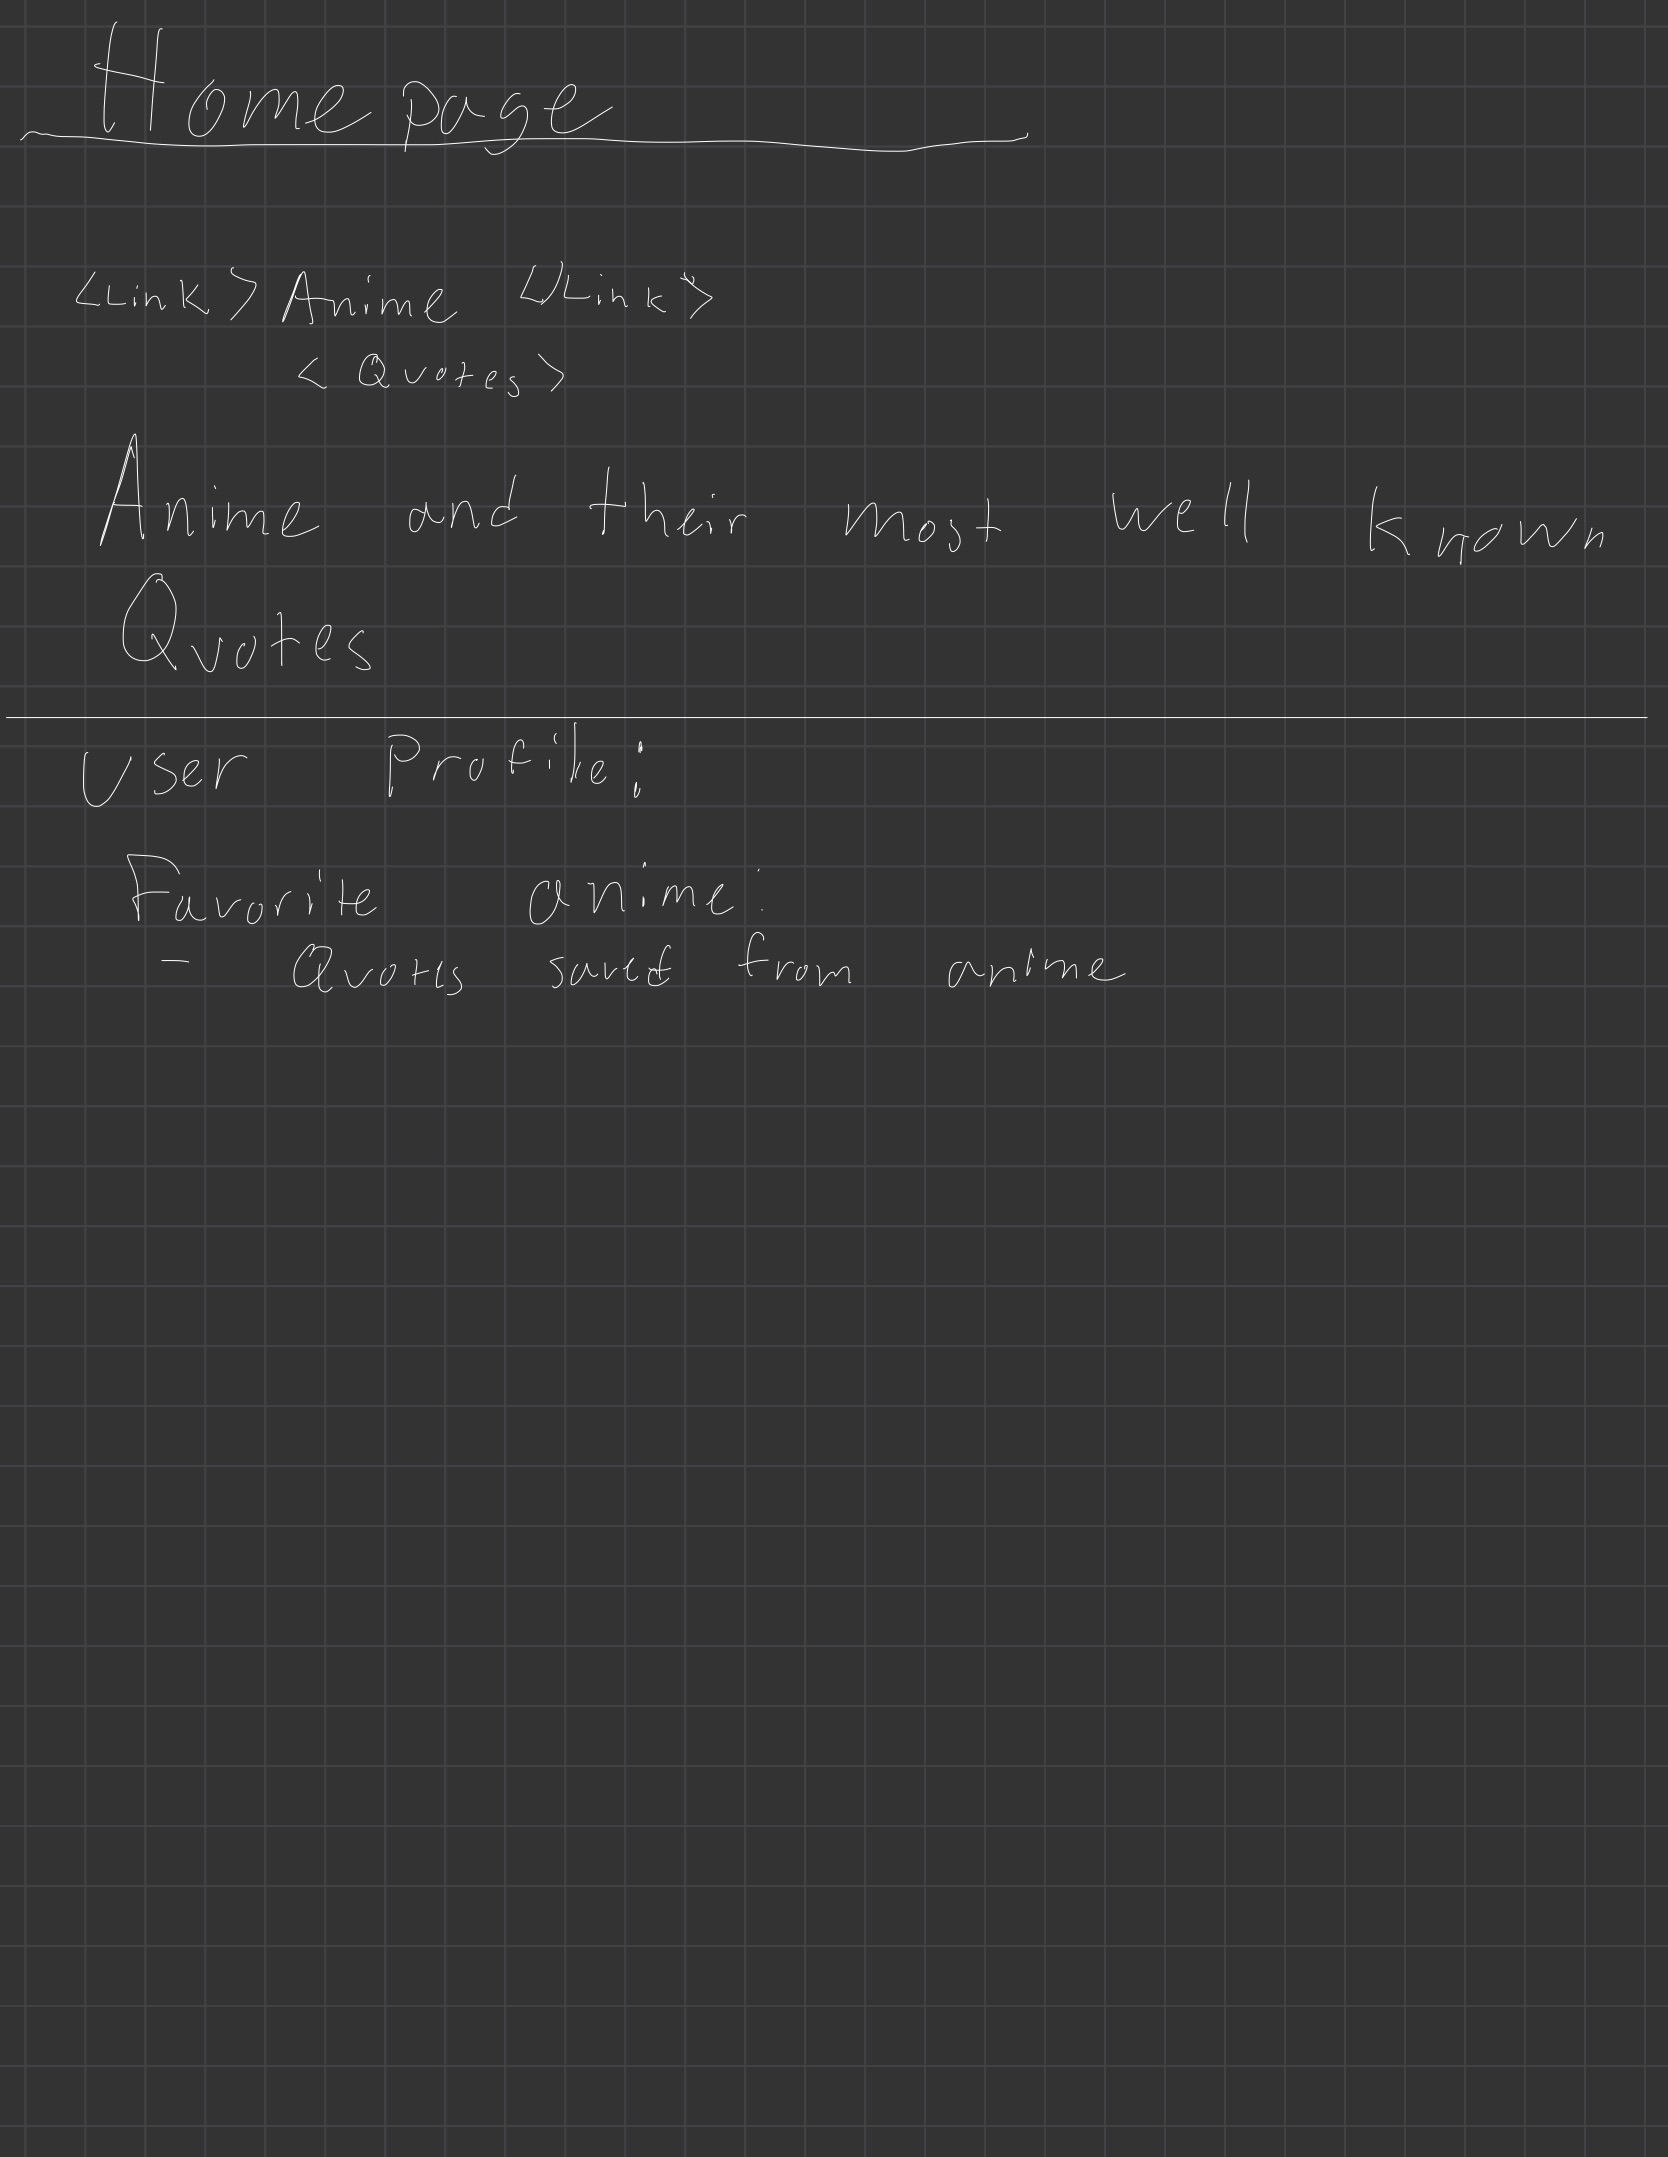 Homepage
<Link> Anime </Link>
<Quotes>
Anime and their most well known
Quotes
User Profile:
Favorite anime:
- Quotes saved from anime